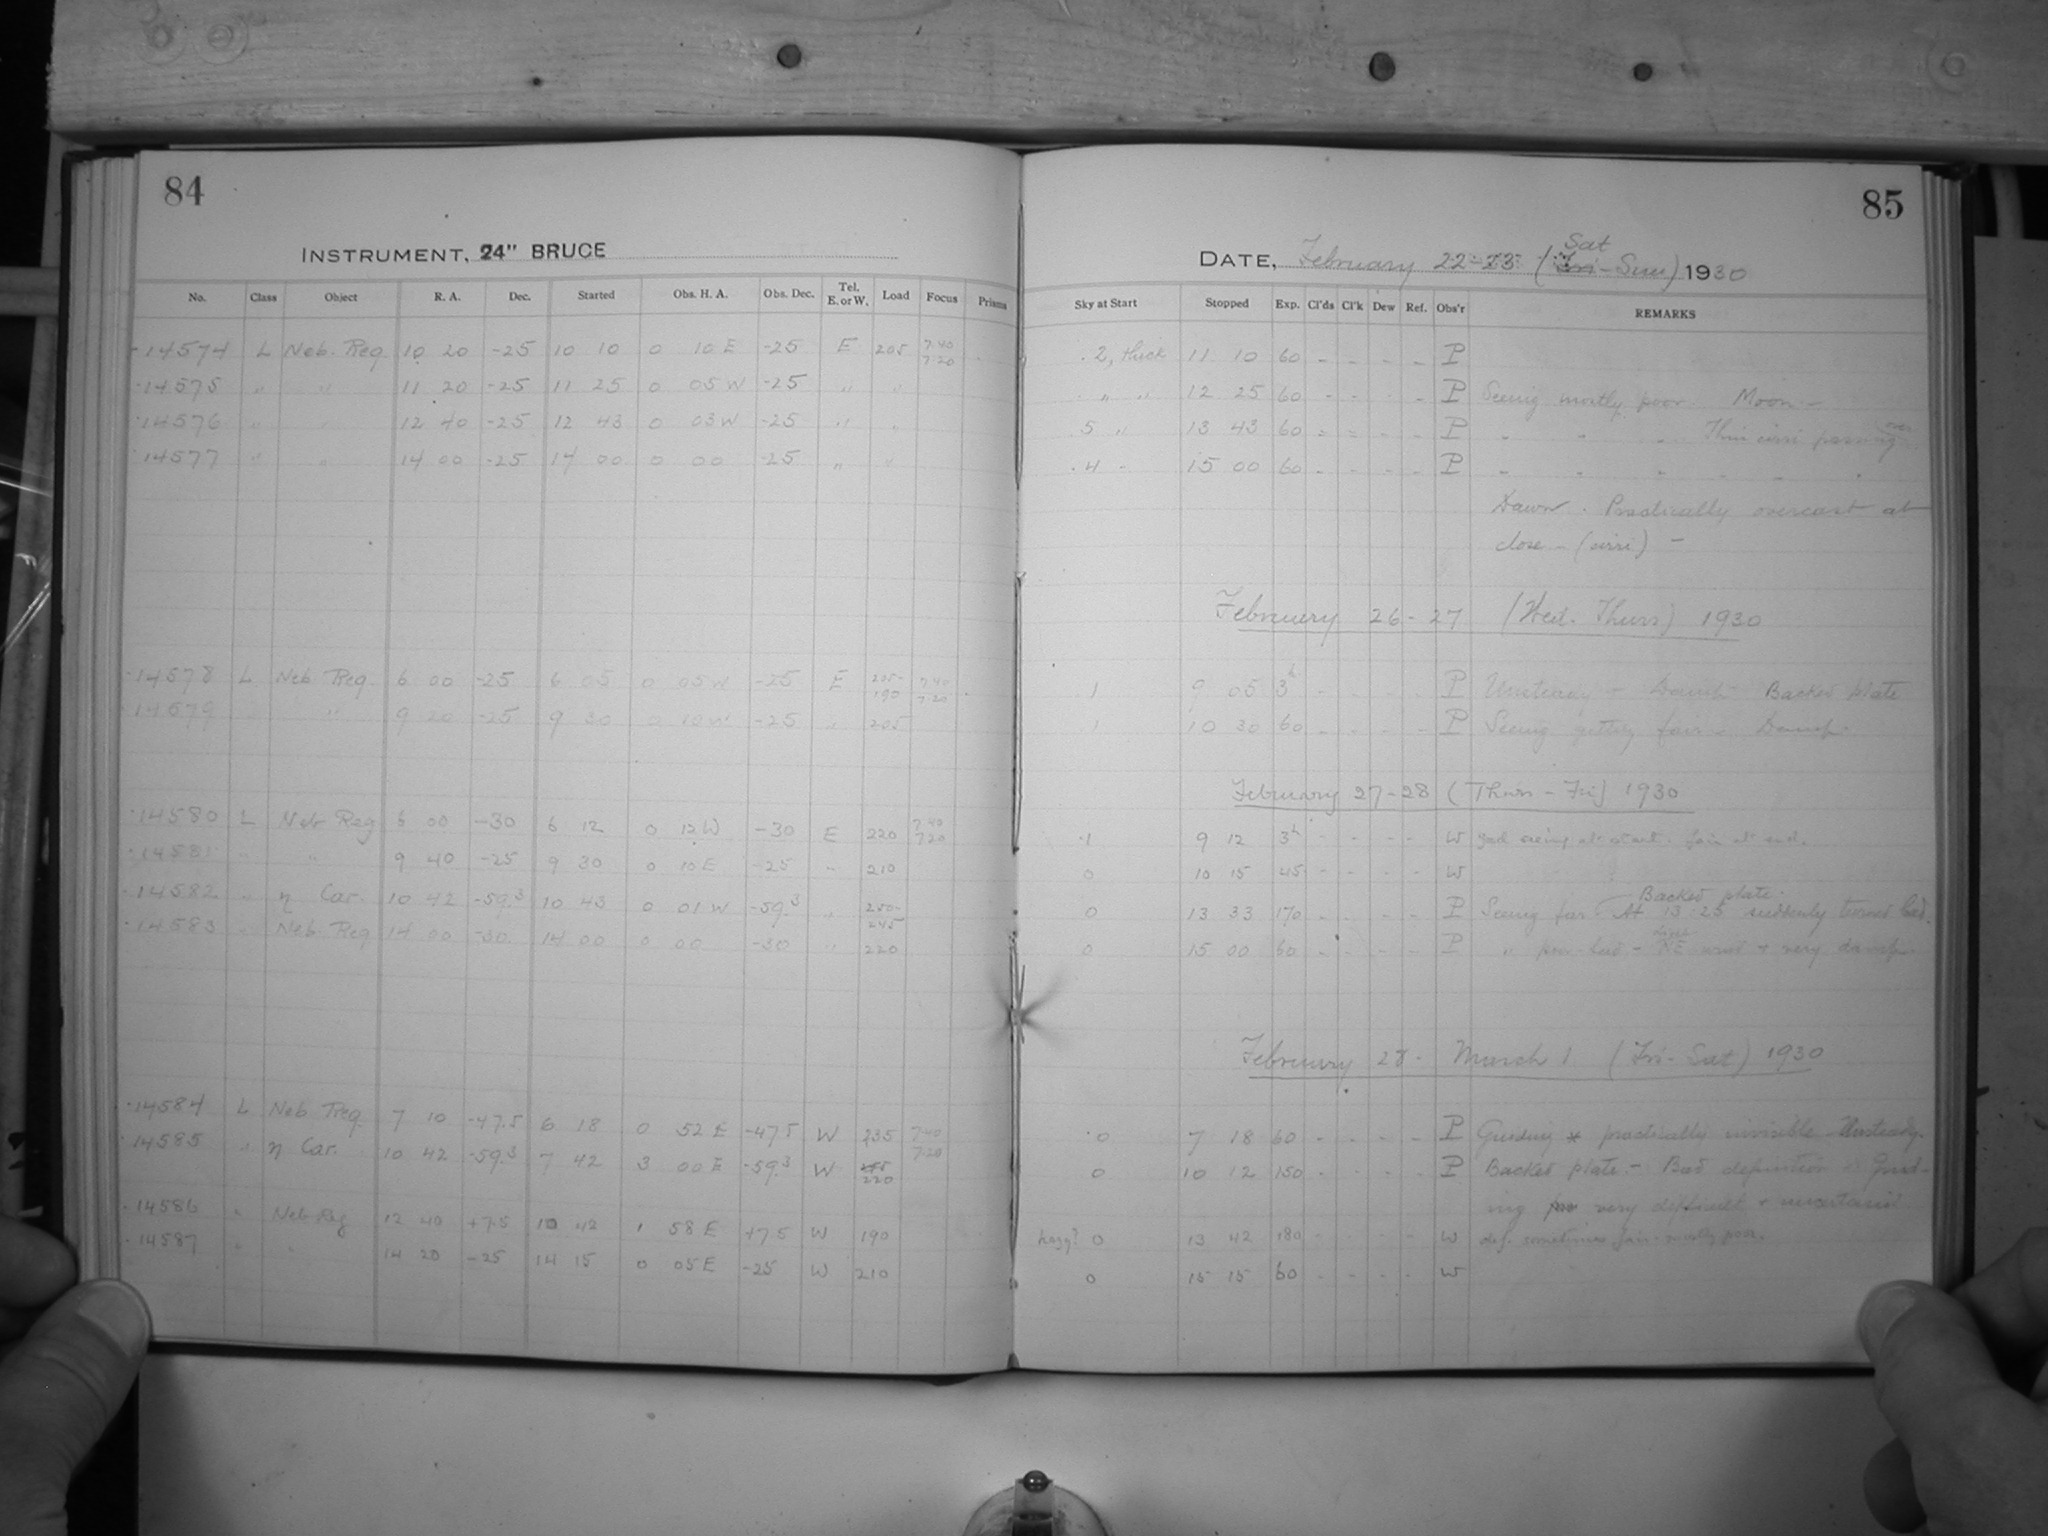 84
INSTRUMENT, 24" BRUCE
No. Class Object R. A. Dec. Started Obs. H. A. Obs. Dec. Tel. E. or W. Load Focus Prisms
14574 L Neb. Reg. 10 20 -25 10 10 0 10 E -25 E 205 7.40 7.20
14575 " " 11 20 -25 11 25 0 05 W -25 " "
14576 " " 12 40 -25 12 43 0 03 W -25 " "
14577 " " 14 00 -25 14 00 0 00 -25 " "
14578 L Neb Reg. 6 00 -25 6 05 0 05 W -25 E 205- 190 7.40 7.20
14579 " 9 20 -25 9 30 0 10 W -25 " 205
14580 L Neb Reg 6 00 -30 6 12 0 12 W -30 E 220 7.40 7.20
14581 " " 9 40 -25 9 30 0 10 E -25 " 210
14582 " η Car. 10 42 -59.3 10 43 0 01 W -59.3 " 250- 245
14583 " Neb. Reg 14 00 -30 14 00 0 00 -30 " 220
14584 L Neb Reg. 7 10 -47.5 6 18 0 52 E -47.5 W 235 7.40 7.20
14585 " η Car. 10 42 -59.3 7 42 3 00 E -59.3 W 220
14586 " Neb Reg 12 40 +7.5 10 42 1 58 E +7.5 W 190
14587 " " 14 20 -25 14 15 0 05 E -25 W 210
85
DATE, February 22-23 (Fri Sat - Sun) 1930
Sky at Start Stopped Exp. Cl'ds Cl'k Dew Ref. Obs'r REMARKS
.2, thick 11 10 60 - - - - P
" " 12 25 60 - - - - P Seeing mostly poor. Moon -
.5 " 13 43 60 - - - - P " " " Thin cirri passing over
.4 " 15 00 60 - - - - P " " " " " "
Dawn. Practically overcast at
close - (cirri) -
February 26-27 (Wed. Thurs) 1930
1 9 05 3h - - - - P Unsteady + Damp Backed plate
1 10 30 60 - - - - P Seeing getting fair - Damp.
February 27-28 (Thurs - Fri) 1930
.1 9 12 3h - - - - W good seeing at start. fair at end.
0 10 15 45 - - - - W
Backed plate.
0 13 33 170 - - - - P Seeing fair. At 13 25 suddenly turned bad.
0 15 00 60 - - - - P " NE wind + very damp
February 28 - March 1 (Fri - Sat) 1930
0 7 18 60 - - - - P Guiding * practically invisible - Unsteady.
0 10 12 150 - - - - P Backed plate - Bad definition Guid-
ing very difficult + uncertain
hazy? 0 13 42 180 - - - - W def. sometimes fair - mostly poor.
0 15 15 60 - - - - W